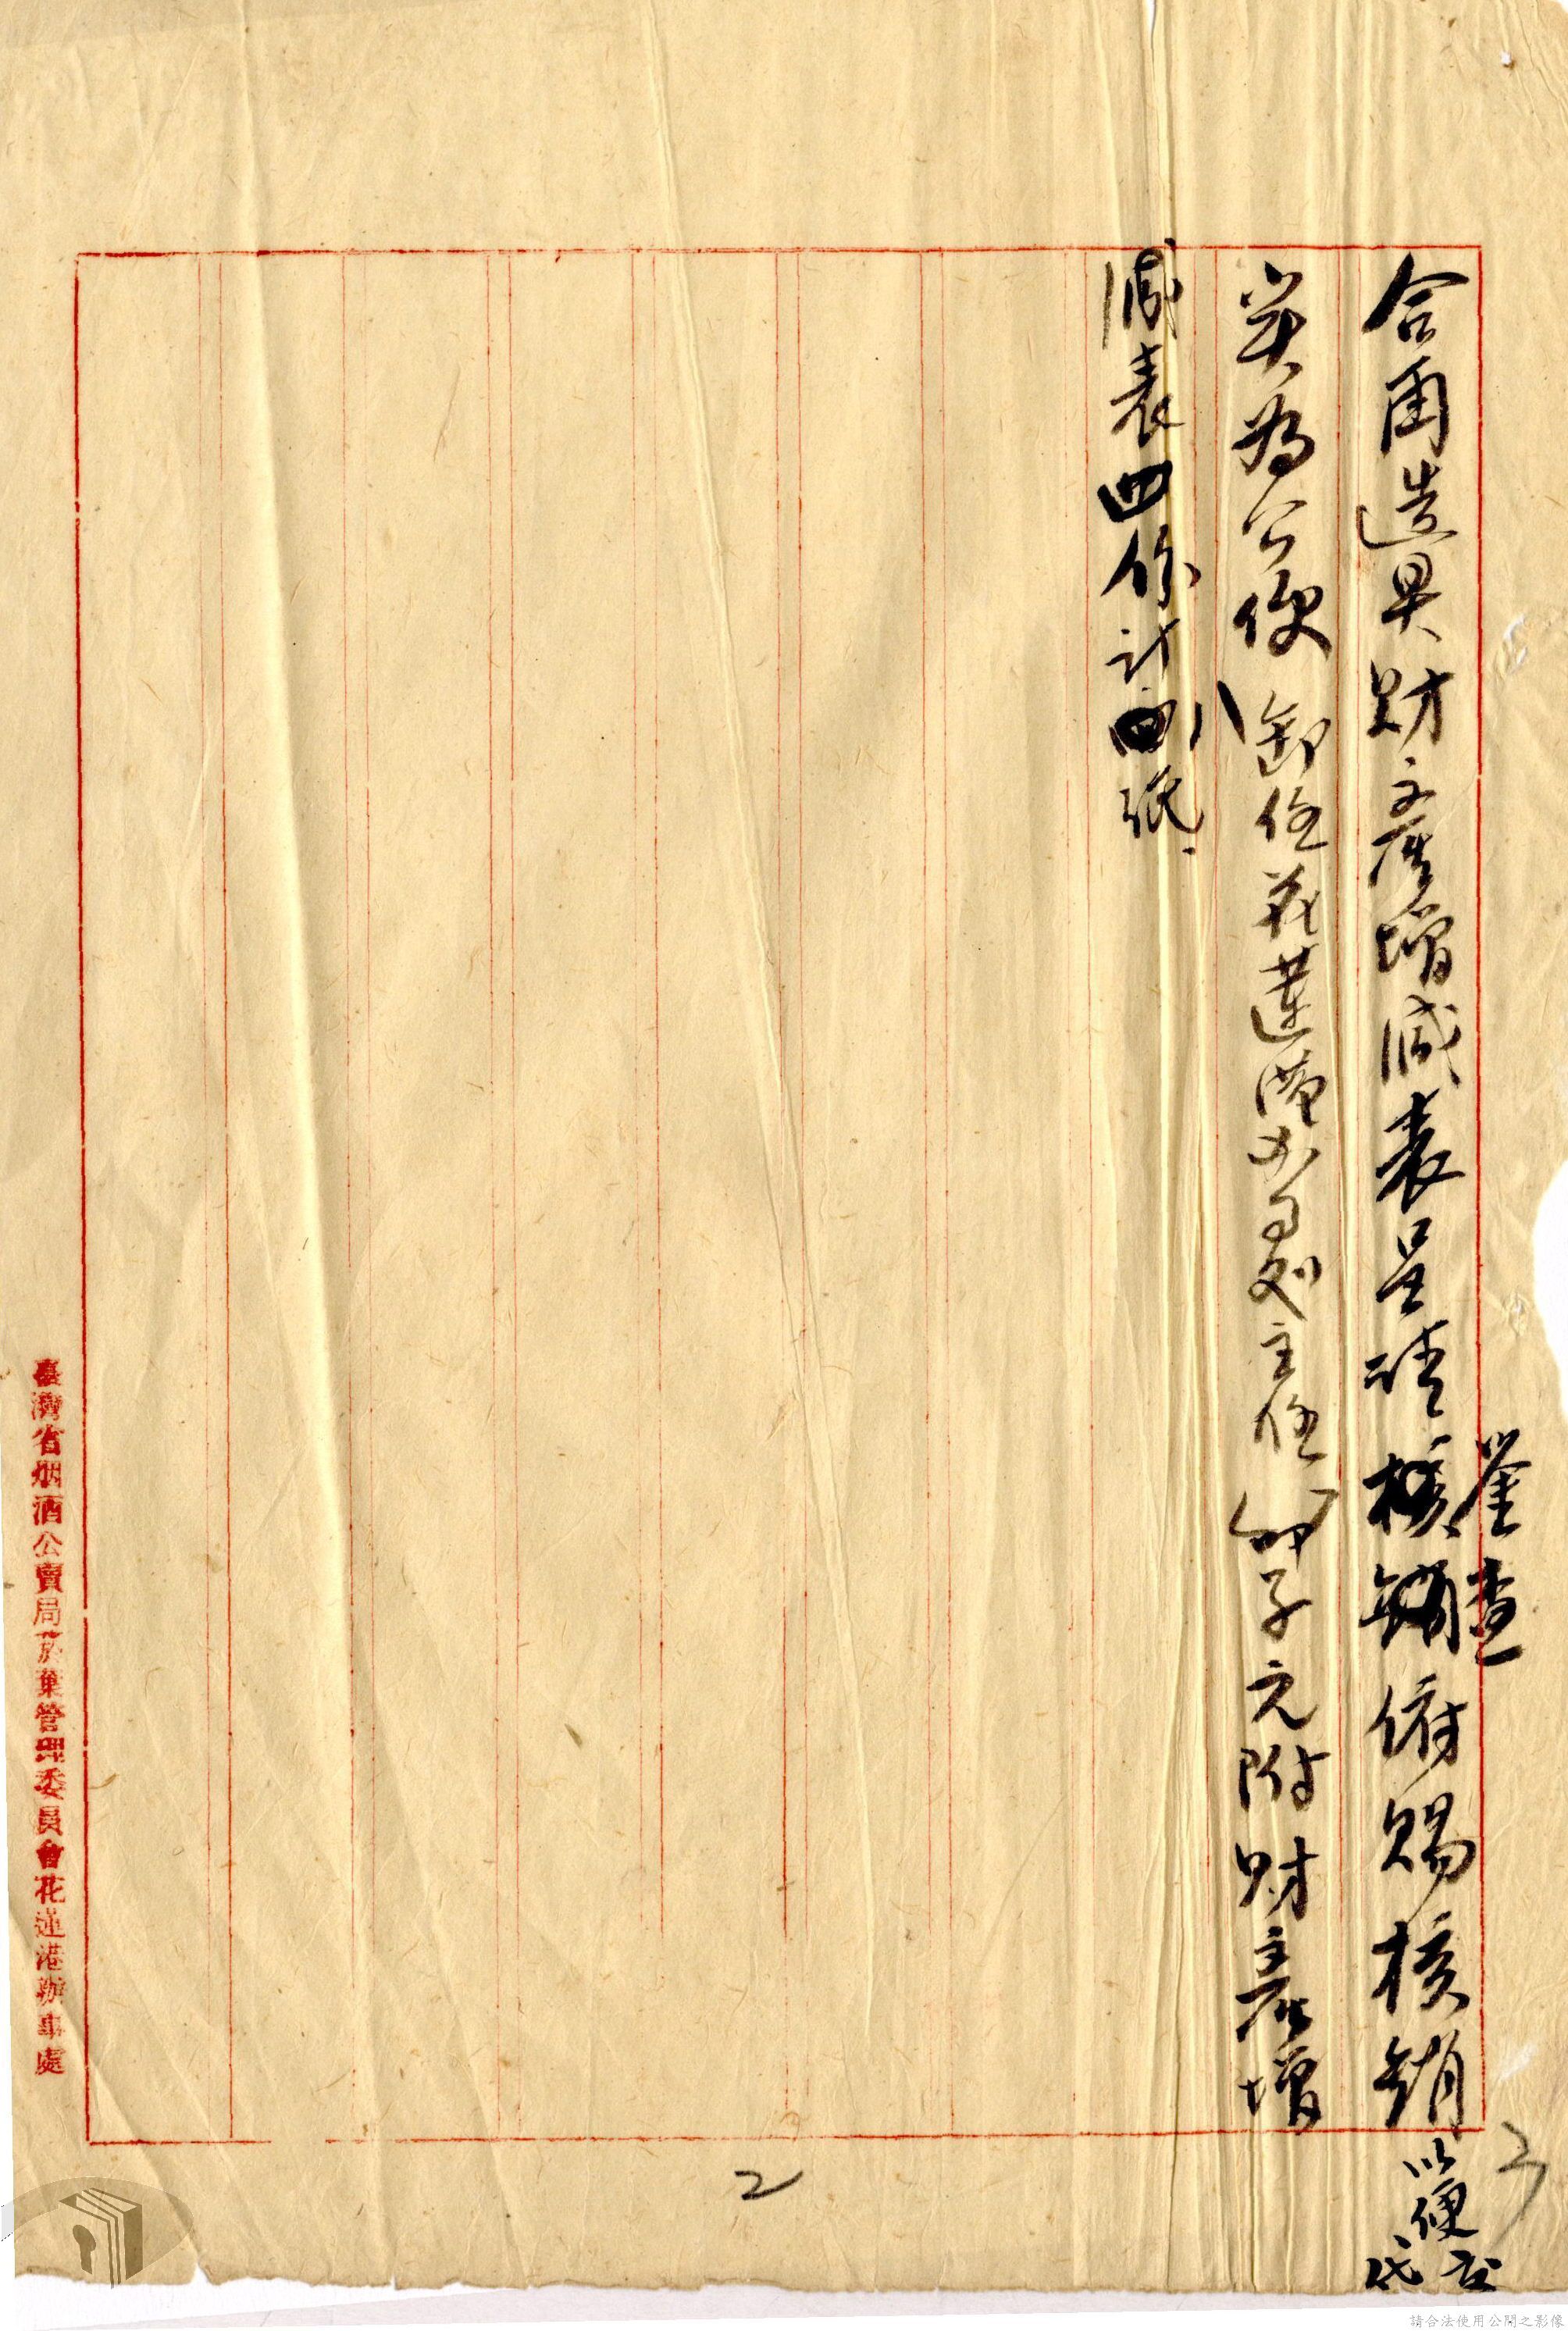 鑒查
合再造具財產增減表呈請核銷俯賜核銷以便交代
实为公便 卸任花蓮港办事処主任 子元附財產增
減表四份計紙
臺灣省烟酒公賣局菸葉管理委員會花蓮港辦事處
2
請合法使用公開之影像